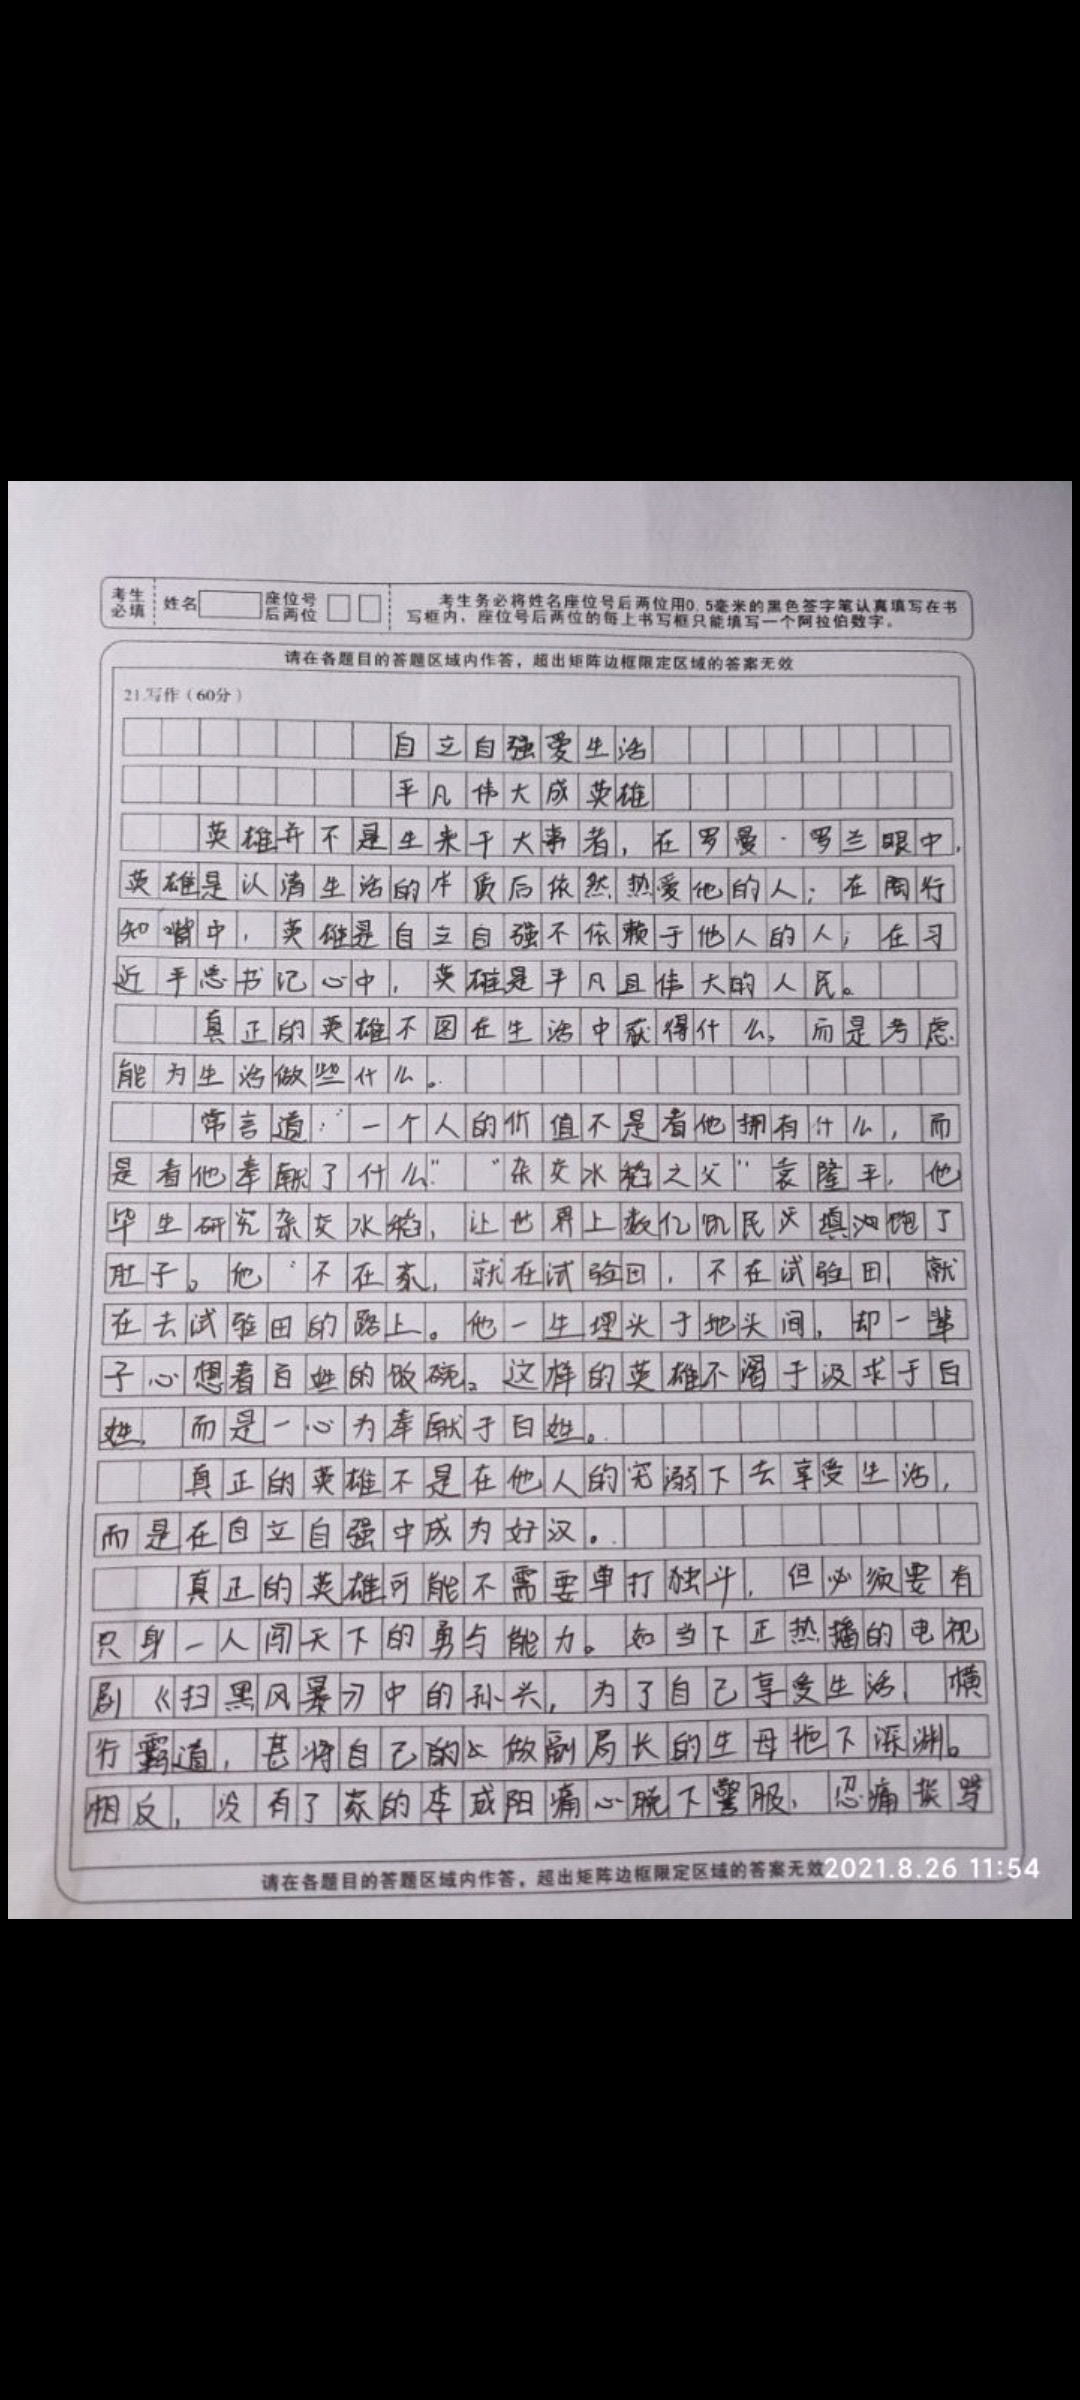 考生
必填
姓名
座位号
后两位
考生务必将姓名座位号后两位用0.5毫米的黑色签字笔认真填写在书
写框内，座位号后两位的每上书写框只能填写一个阿拉伯数字。
请在各题目的答题区域内作答，超出矩阵边框限定区域的答案无效
21.写作（60分）
自立自强爱生活
平凡伟大成英雄
英雄并不是生来干大事者，在罗曼·罗兰眼中，
英雄是认清生活的本质后依然热爱他的人；在陶行
知嘴中，英雄是自立自强不依赖于他人的人；在习
近平总书记心中，英雄是平凡且伟大的人民。
真正的英雄不图在生活中获得什么，而是考虑
能为生活做些什么。
常言道：“一个人的价值不是看他拥有什么，而
是看他奉献了什么”“杂交水稻之父”袁隆平，他
毕生研究杂交水稻，让世界上数亿饥民填饱了
肚子。他不在家，就在试验田，不在试验田，就
在去试验田的路上。他一生埋头于地头间，却一辈
子心想着百姓的饭碗。这样的英雄不渴于汲求于百
姓，而是一心为奉献于百姓。
真正的英雄不是在他人的宠溺下去享受生活，
而是在自立自强中成为好汉。
真正的英雄可能不需要单打独斗，但必须要有
只身一人闯天下的勇与能力。如当下正热播的电视
剧《扫黑风暴》中的孙兴，为了自己享受生活，横
行霸道，甚将自己的做副局长的生母拖下深渊。
相反，没有了家的李成阳痛心脱下警服，忍痛挨骂
请在各题目的答题区域内作答，超出矩阵边框限定区域的答案无效
2021.8.26 11:54